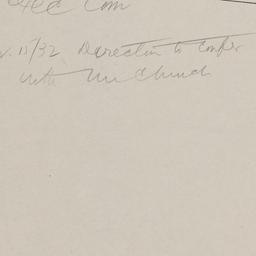 Exec Com
15/32 Direction to confer
with Mr Church